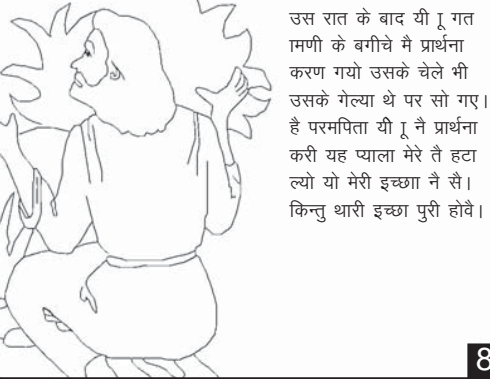 उस रात के बाद यी ाू गत
ामणी के बगीचे मै प्रार्थना
करण गयो उसके चेले भी
उसके गेल्या थे पर सो गए।
है परमपिता यीी ाू नै प्रार्थना
करी यह प्याला मेरे तै हटा
ल्यो यो मेरी इच्छाा नै सै।
किन्तु थारी इच्छा पुरी होवै।
8